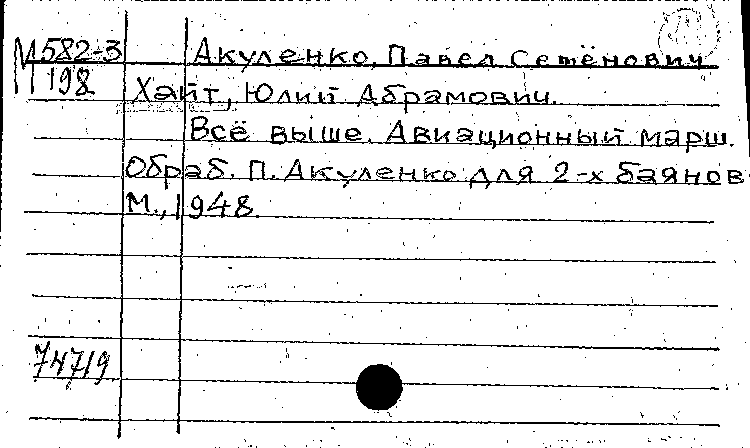 М 582-3 Акуленко, Павел Семёнович
198 Хайт, Юлий Абрамович.
Всё выше. Авиационный марш.
Обраб. П. Акуленко для 2-х баянов
М., 1948.
74719